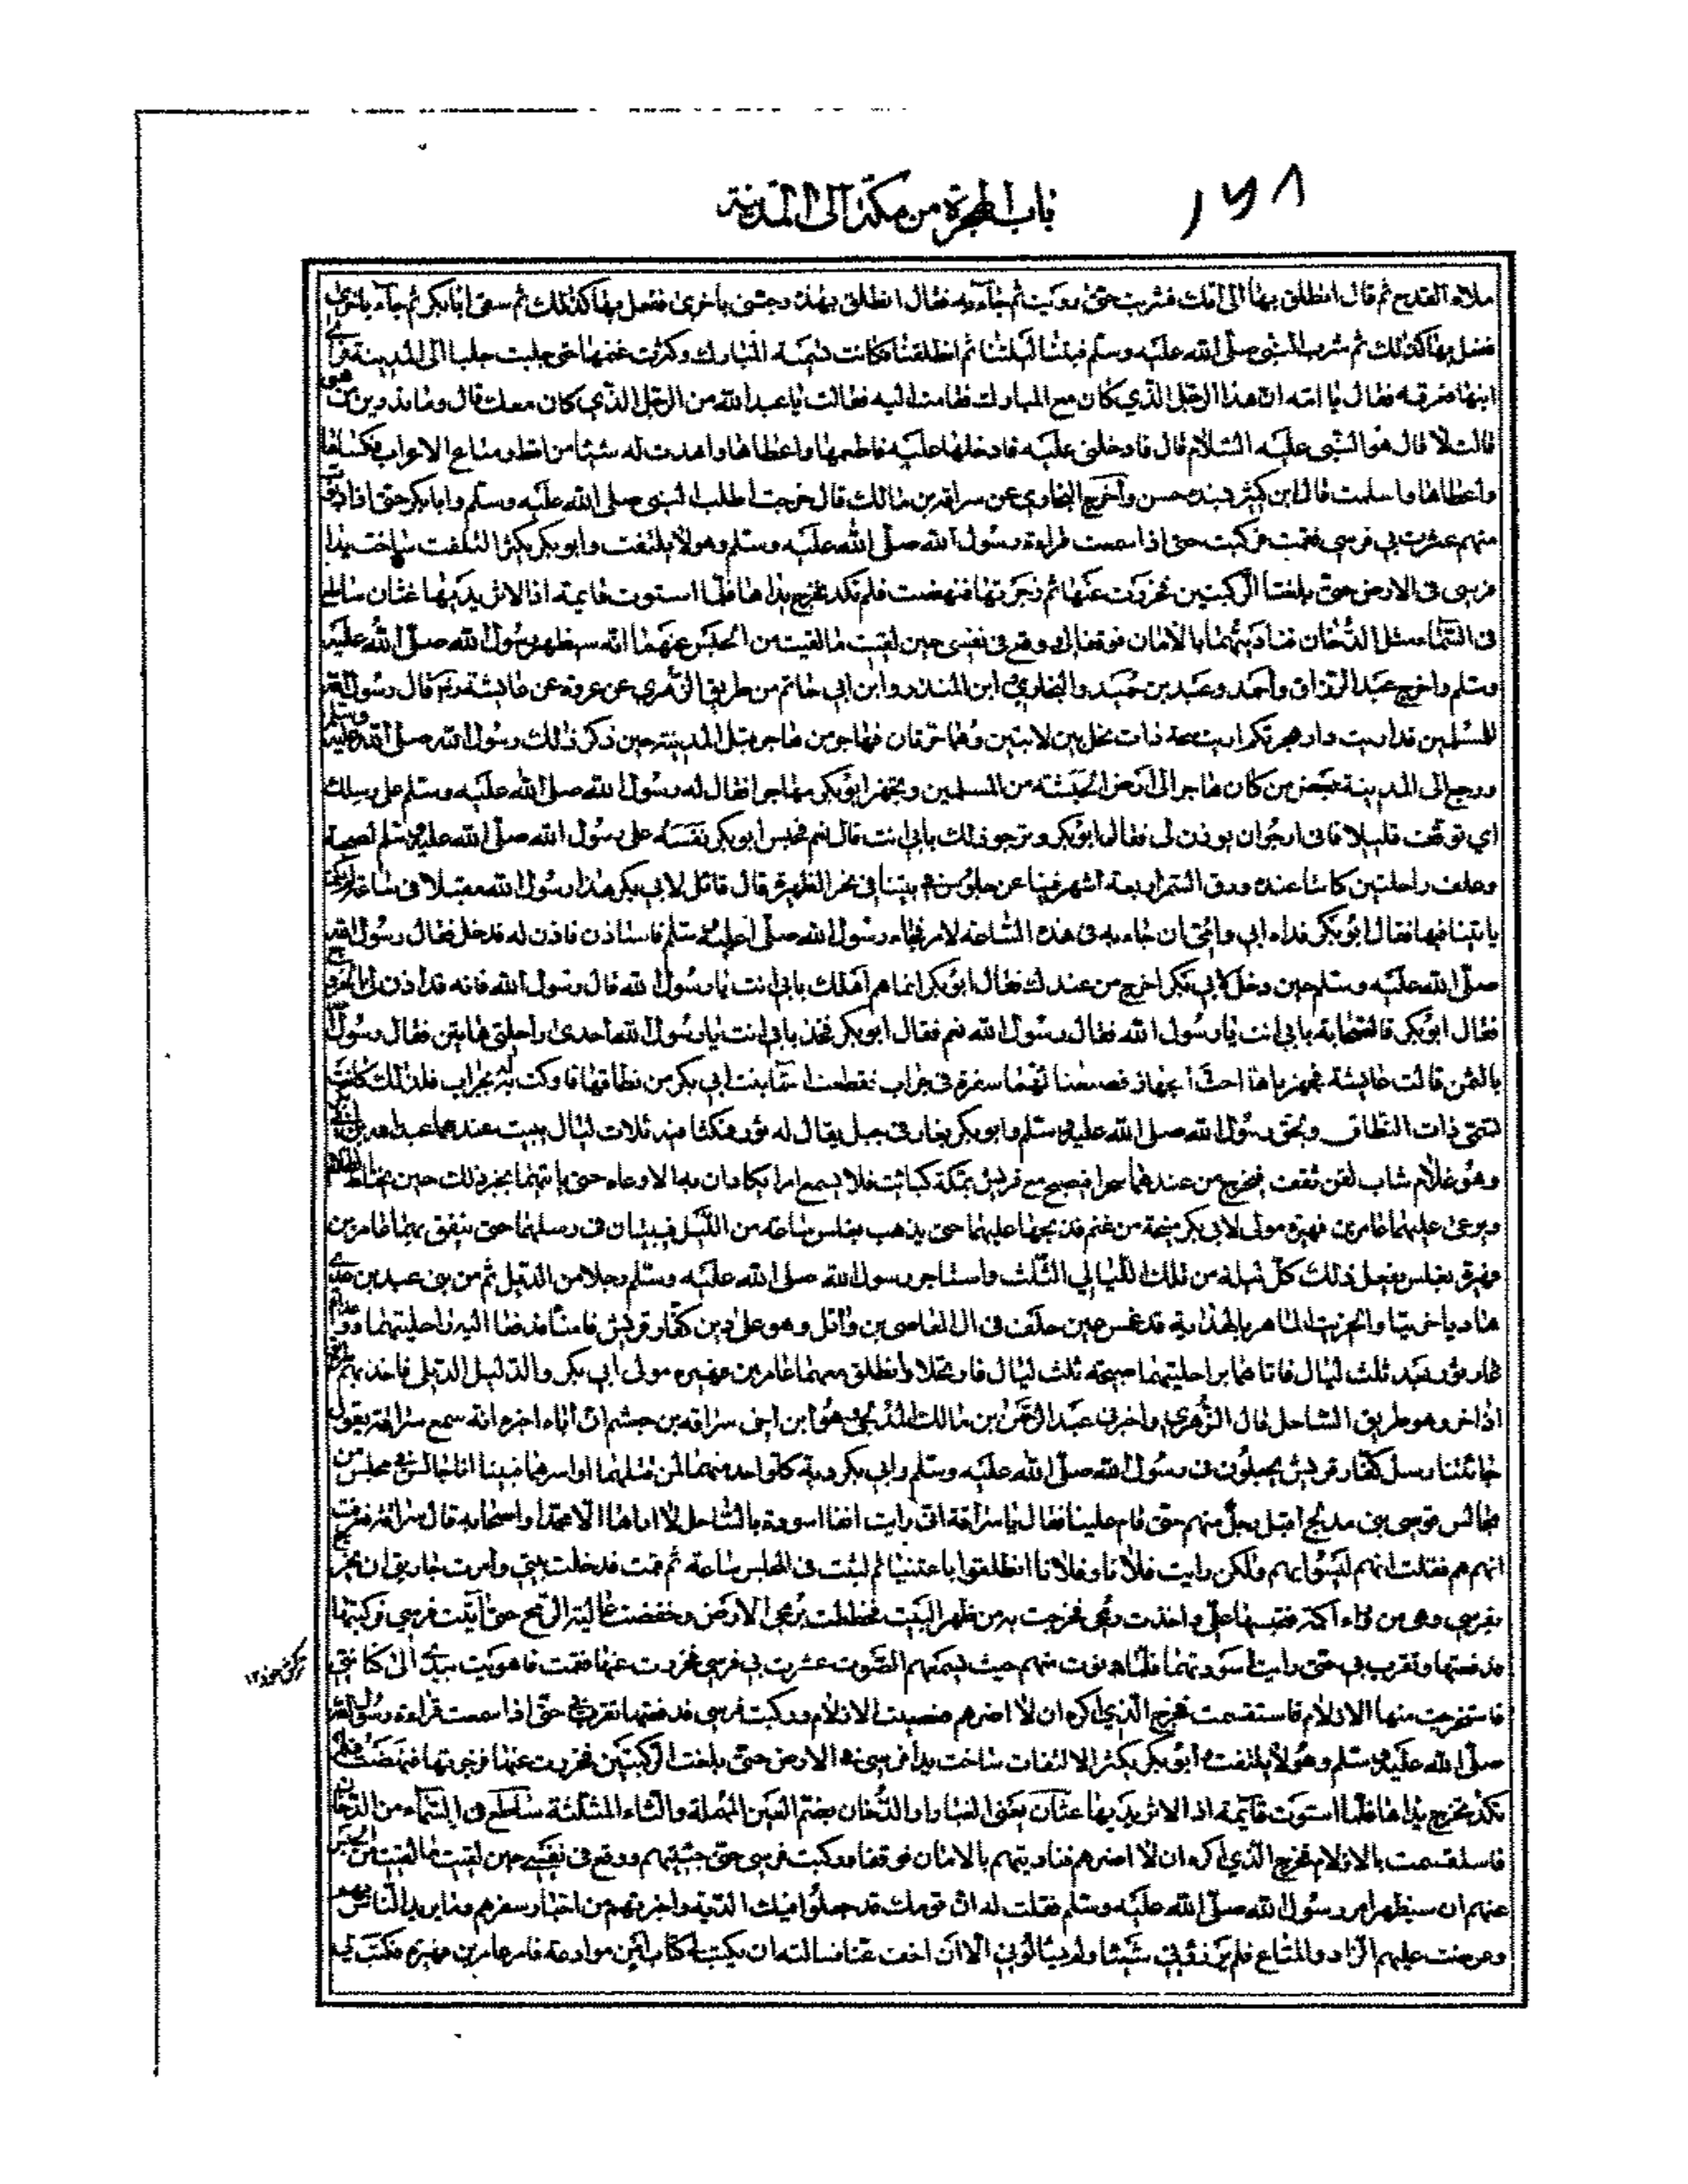 باب الهجرة من مكة الى المدينة
١٦٨
ملاء القدح ثم قال انطلق بها الى امك فشربت حتى رويت ثم جاء به فقال انطلق بهذه وجئنى باخرى ففعل بها كذلك ثم سقى ابابكر ثم جاء باخرى
ففعل بها كذلك ثم شرب النبى صلى الله عليه وسلم فبتنا ليلتنا ثم انطلقنا فكانت تسميه المبارك وكثرت غنمها حتى جلبت جلبا الى المدينة فراى
ابنها فعرفه فقال يا امه ان هذا الرجل الذي كان مع المبارك فقامت اليه فقالت يا عبد الله من الرجل الذي كان معك قال وما تدرين من هو
قالت لا قال هو النبى عليه السلام قال فادخلنى عليه فادخلها عليه فاطعمها واعطاها واهدت له شيئا من اقط ومتاع الاعراب فكساها
واعطاها واسلمت قال ابن كثير سنده حسن وأخرج البخاري عن سراقه بن مالك قال خرجت اطلب النبى صلى الله عليه وسلم وابابكر حتى اذا دنوت
منهم عثرت بي فرسى فقمت فركبت حتى اذا سمعت قراءة رسول الله صلى الله عليه وسلم وهو لا يلتفت وابو بكر يكثر التلفت ساخت يدا
فرسى فى الارض حتى بلغتا الركبتين فخررت عنها ثم زجرتها فنهضت فلم تكد تخرج يداها فلما استوت قايمة اذا لاثر يديها عثان ساطع
فى السماء مثل الدخان فناديتهما بالامان فوقفا لى ووقع فى نفسى حين لقيت ما لقيت من الحبس عنهما انه سيظهر رسول الله صلى الله عليه
وسلم واخرج عبد الرزاق واحمد وعبد بن حميد والبخاري وابن المنذر وابن ابي حاتم من طريق الزهري عن عروة عن عايشة قال رسول الله
للمسلمين قد اريت دار هجرتكم اريت سبخة ذات نخل بين لابتين وهما حرتان فهاجر من هاجر قبل المدينة حين ذكر ذلك رسول الله صلى الله عليه وسلم
ورجع الى المدينة بعض من كان هاجر الى ارض الحبشة من المسلمين وتجهز ابوبكر مهاجرا فقال له رسول الله صلى الله عليه وسلم على رسلك
اي توقف قليلا فانى ارجو ان يوذن لى فقال ابوبكر وترجو ذلك بابى انت قال نعم فحبس ابوبكر نفسه على رسول الله صلى الله عليه وسلم لصحبته
وعلف راحلتين كانتا عنده ورق السمر اربعة اشهر فبينا نحن جلوس فى بيتنا فى نحر الظهيرة قال قائل لابى بكر هذا رسول الله مقبلا فى ساعة لم يكن
ياتينا فيها فقال ابوبكر فداه ابي وامى ان جاء به فى هذه الساعة لامر فجاء رسول الله صلى الله عليه وسلم فاستاذن فاذن له فدخل فقال رسول الله
صلى الله عليه وسلم حين دخل لابي بكر اخرج من عندك فقال ابوبكر انما هم اهلك بابى انت يا رسول الله قال رسول الله فانه قد اذن لى بالخروج
فقال ابوبكر فالصحابة بابى انت يا رسول الله فقال رسول الله نعم فقال ابوبكر فخذ بابى انت يا رسول الله احدى راحلتى هاتين فقال رسول الله
بالثمن قالت عايشة فجهزناهما احث الجهاز فصنعنا لهما سفرة فى جراب فقطعت اسما بنت ابي بكر من نطاقها فاوكت به الجراب فلذلك كانت
تسمى ذات النطاق ولحق رسول الله صلى الله عليه وسلم وابوبكر بغار فى جبل يقال له ثور فمكثا فيه ثلاث ليال يبيت عندهما عبد الله بن ابي بكر
وهو غلام شاب لقن ثقف فيخرج من عندهما سحرا فيصبح مع قريش بمكة كبائت فلا يسمع امرا يكادان به الا وعاه حتى ياتيهما بخبر ذلك حين يختلط الظلام
ويرعى عليهما عامر بن فهيرة مولى لابى بكر منحة من غنم فيريحها عليهما حتى يذهب بغلس ساعة من الليل فيبيتان فى رسلهما حتى ينعق بهما عامر بن
فهيرة بغلس يفعل ذلك كل ليلة من تلك الليالى الثلث واستاجر رسول الله صلى الله عليه وسلم رجلا من الديل ثم من بنى عبد بن عدى
هاديا خريتا والخريت الماهر بالهداية قد غمس يمين حلف فى ال العاصى بن وائل وهو على دين كفار قريش فامناه فدفعا اليه راحلتيهما وواعداه
غار ثور بعد ثلث ليال فاتاهما براحلتيهما صبيحة ثلث ليال فارتحلا وانطلق معهما عامر بن فهيرة مولى ابي بكر والدليل الديلى فاخذ بهم طريق
اذاخر وهو طريق الساحل قال الزهري واخبرنى عبد الرحمن بن مالك المدلجى وهو ابن اخى سراقة بن جعشم ان اباه اخبره انه سمع سراقة يقول
جائتنا رسل كفار قريش يجعلون فى رسول الله صلى الله عليه وسلم وابي بكر دية كل واحد منهما لمن قتلهما او اسرهما فبينا انا جالس فى مجلس من
مجالس قومى بنى مدلج اقبل رجل منهم حتى قام علينا فقال يا سراقة انى رايت انفا اسودة بالساحل لا اراها الا محمدا واصحابه قال سراقة فعرفت
انهم هم فقلت انهم ليسوا بهم ولكن رايت فلانا وفلانا انطلقوا باعيننا ثم لبثت فى المجلس ساعة ثم قمت فدخلت بيتى وامرت جاريتى ان تخرج
بفرسي وهى من وراء اكمة فتحبسها علي واخذت رمحى فخرجت به من ظهر البيت فخططت بزجه الارض وخفضت عالية الرمح حتى أتيت فرسي فركبتها
فدفعتها تقرب بى حتى رايت اسودتهما فلما دنوت منهم حيث يسمعهم الصوت عثرت بى فرسي فخررت عنها فقمت فاهويت بيدى الى كنانتى
فاستخرجت منها الازلام فاستقسمت فخرج الذي اكره ان لا اضرهم فعصيت الازلام وركبت فرسي فدفعتها تقرب بى حتى اذا سمعت قراءة رسول الله
صلى الله عليه وسلم وهو لا يلتفت وابوبكر يكثر الالتفات ساخت يدا فرسى فى الارض حتى بلغت الركبتين فخررت عنها فزجرتها فنهضت فلم
تكد تخرج يداها فلما استوت قايمة اذا لاثر يديها عثان بمعنى الغبار او الدخان بضم العين المهملة والثاء المثلثة ساطع فى السماء من الدخان
فاستقسمت بالازلام فخرج الذي اكره ان لا اضرهم فناديتهم بالامان فوقفا وركبت فرسى حتى جئتهم ووقع فى نفسى حين لقيت ما لقيت من الحبس
عنهم ان سيظهر امر رسول الله صلى الله عليه وسلم فقلت له ان قومك قد جعلوا فيك الدية واخبرتهم من اخبار سفرهم وما يريد الناس بهم
وعرضت عليهم الزاد والمتاع فلم يرزؤنى شيئا ولم يسالونى الا ان اخف عنا فسالته ان يكتب لى كتاب امن موادعة فامر عامر بن فهيرة فكتب لى